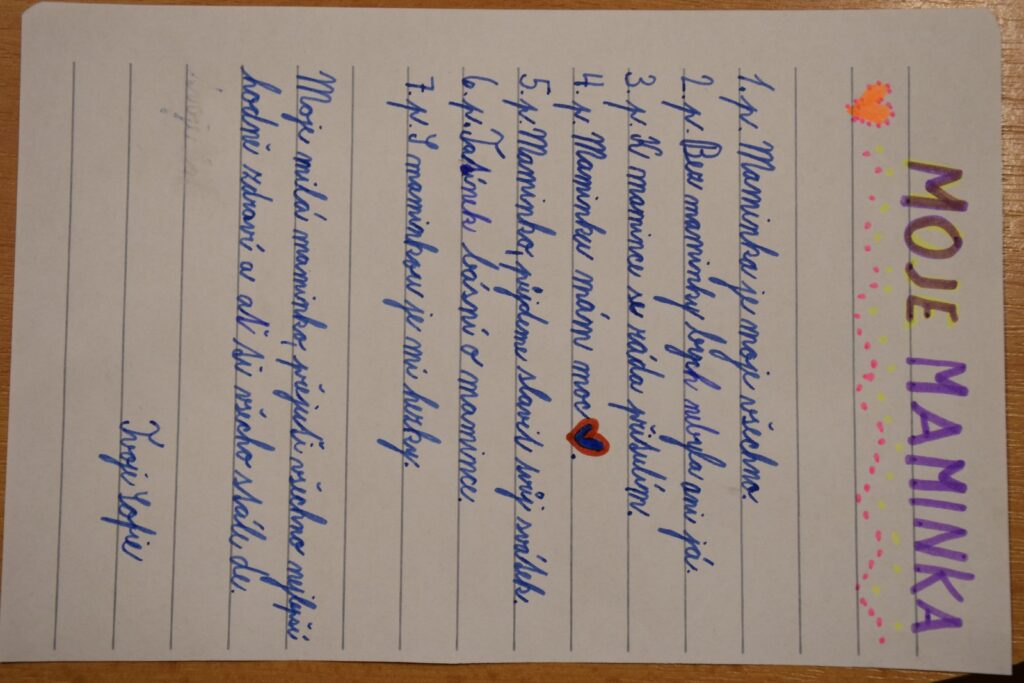 MOJE MAMINKA
1. p. Maminka je moje všechno.
2. p. Bez maminky bych nebyla ani já.
3. p. K mamince se ráda přitulím.
4. p. Maminku mám moc
5. p. Maminko, půjdeme slavit tvůj svátek.
6. p. Tatínek básní o mamince.
7. p. S maminkou je mi hezky.
Moje milá maminko, přeju ti všechno nejlepší
hodně zdraví a ať ti všecho stále de.
Tvoje Sofie